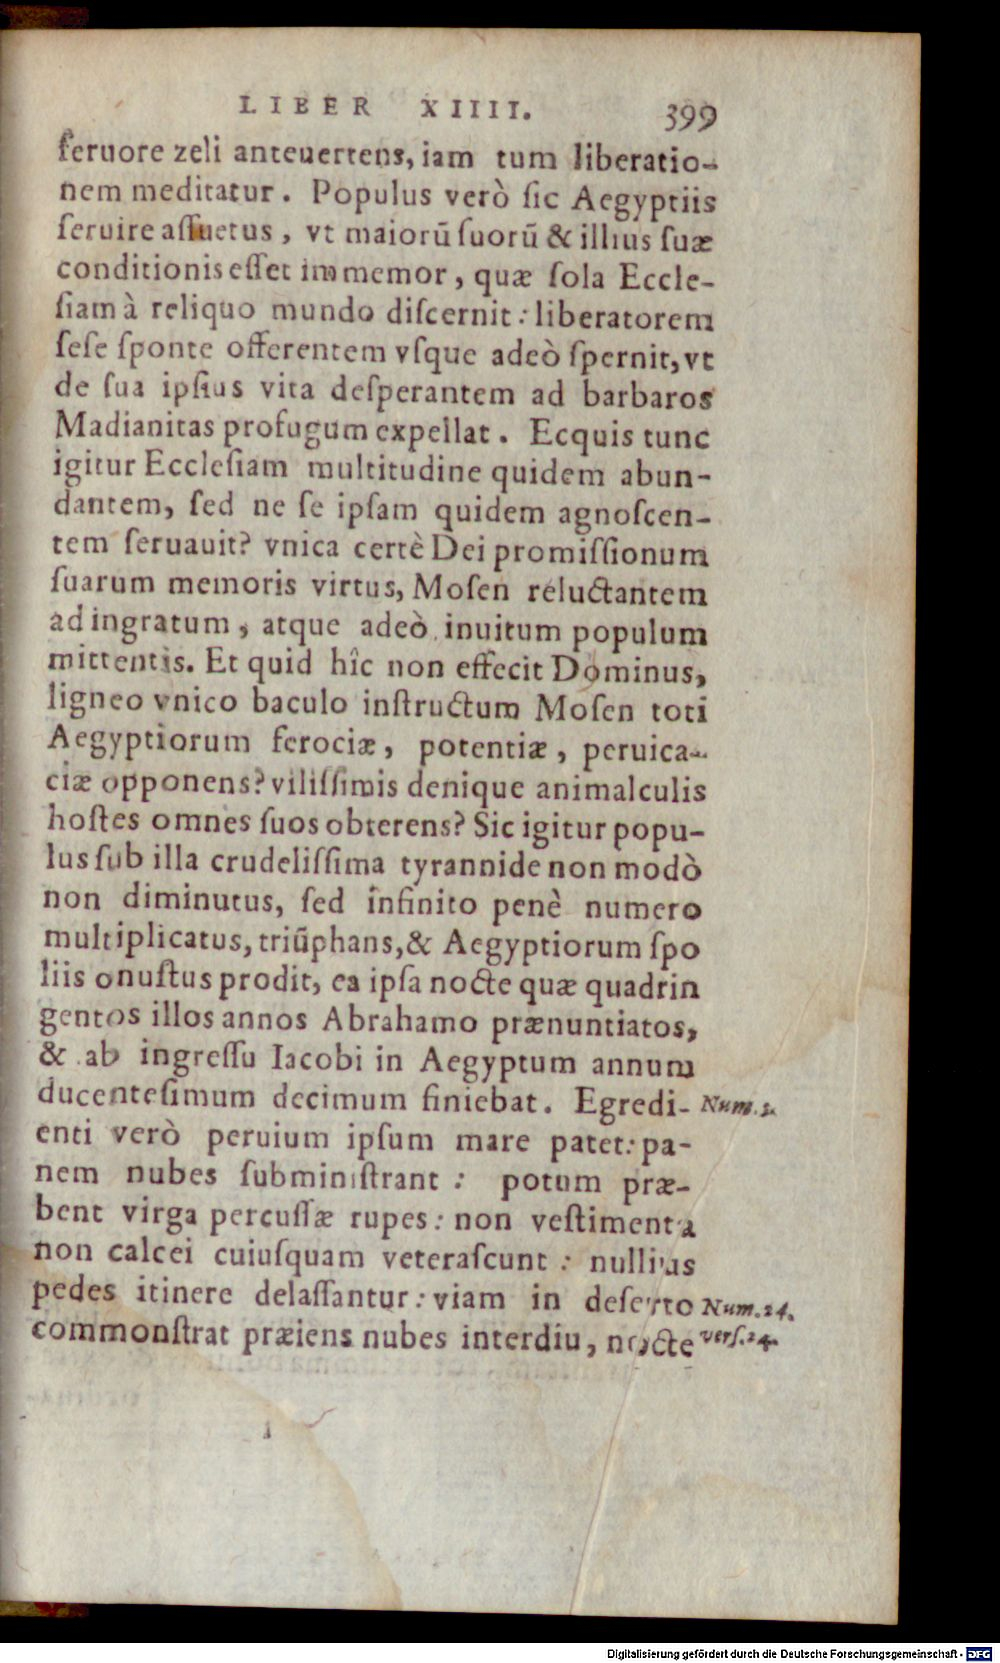 LIBER XIIII. 399
feruore zeli anteuertens, iam tum liberatio-
nem meditatur. Populus verò sic Aegyptiis
seruire assuetus, vt maiorũ suorũ & illius suæ
conditionis esset immemor, quæ sola Eccle-
siam à reliquo mundo discernit: liberatorem
sese sponte offerentem vsque adeò spernit, vt
de sua ipsius vita desperantem ad barbaros
Madianitas profugum expellat. Ecquis tunc
igitur Ecclesiam multitudine quidem abun-
dantem, sed ne se ipsam quidem agnoscen-
tem seruauit? vnica certè Dei promissionum
suarum memoris virtus, Mosen reluctantem
ad ingratum, atque adeò inuitum populum
mittentis. Et quid hîc non effecit Dominus,
ligneo vnico baculo instructum Mosen toti
Aegyptiorum ferociæ, potentiæ, peruica-
ciæ opponens? vilissimis denique animalculis
hostes omnes suos obterens? Sic igitur popu-
lus sub illa crudelissima tyrannide non modò
non diminutus, sed infinito penè numero
multiplicatus, triũphans, & Aegyptiorum spo
liis onustus prodit, ea ipsa nocte quæ quadrin
gentos illos annos Abrahamo prænuntiatos,
& ab ingressu Iacobi in Aegyptum annum
ducentesimum decimum finiebat. Egredi- Num.
enti verò peruium ipsum mare patet: pa-
nem nubes subministrant: potum præ-
bent virga percussæ rupes: non vestimenta
non calcei cuiusquam veterascunt: nullius
pedes itinere delassantur: viam in deserto Num. 14.
commonstrat præiens nubes interdiu, nocte vers. 14.
Digitalisierung gefördert durch die Deutsche Forschungsgemeinschaft - DFG